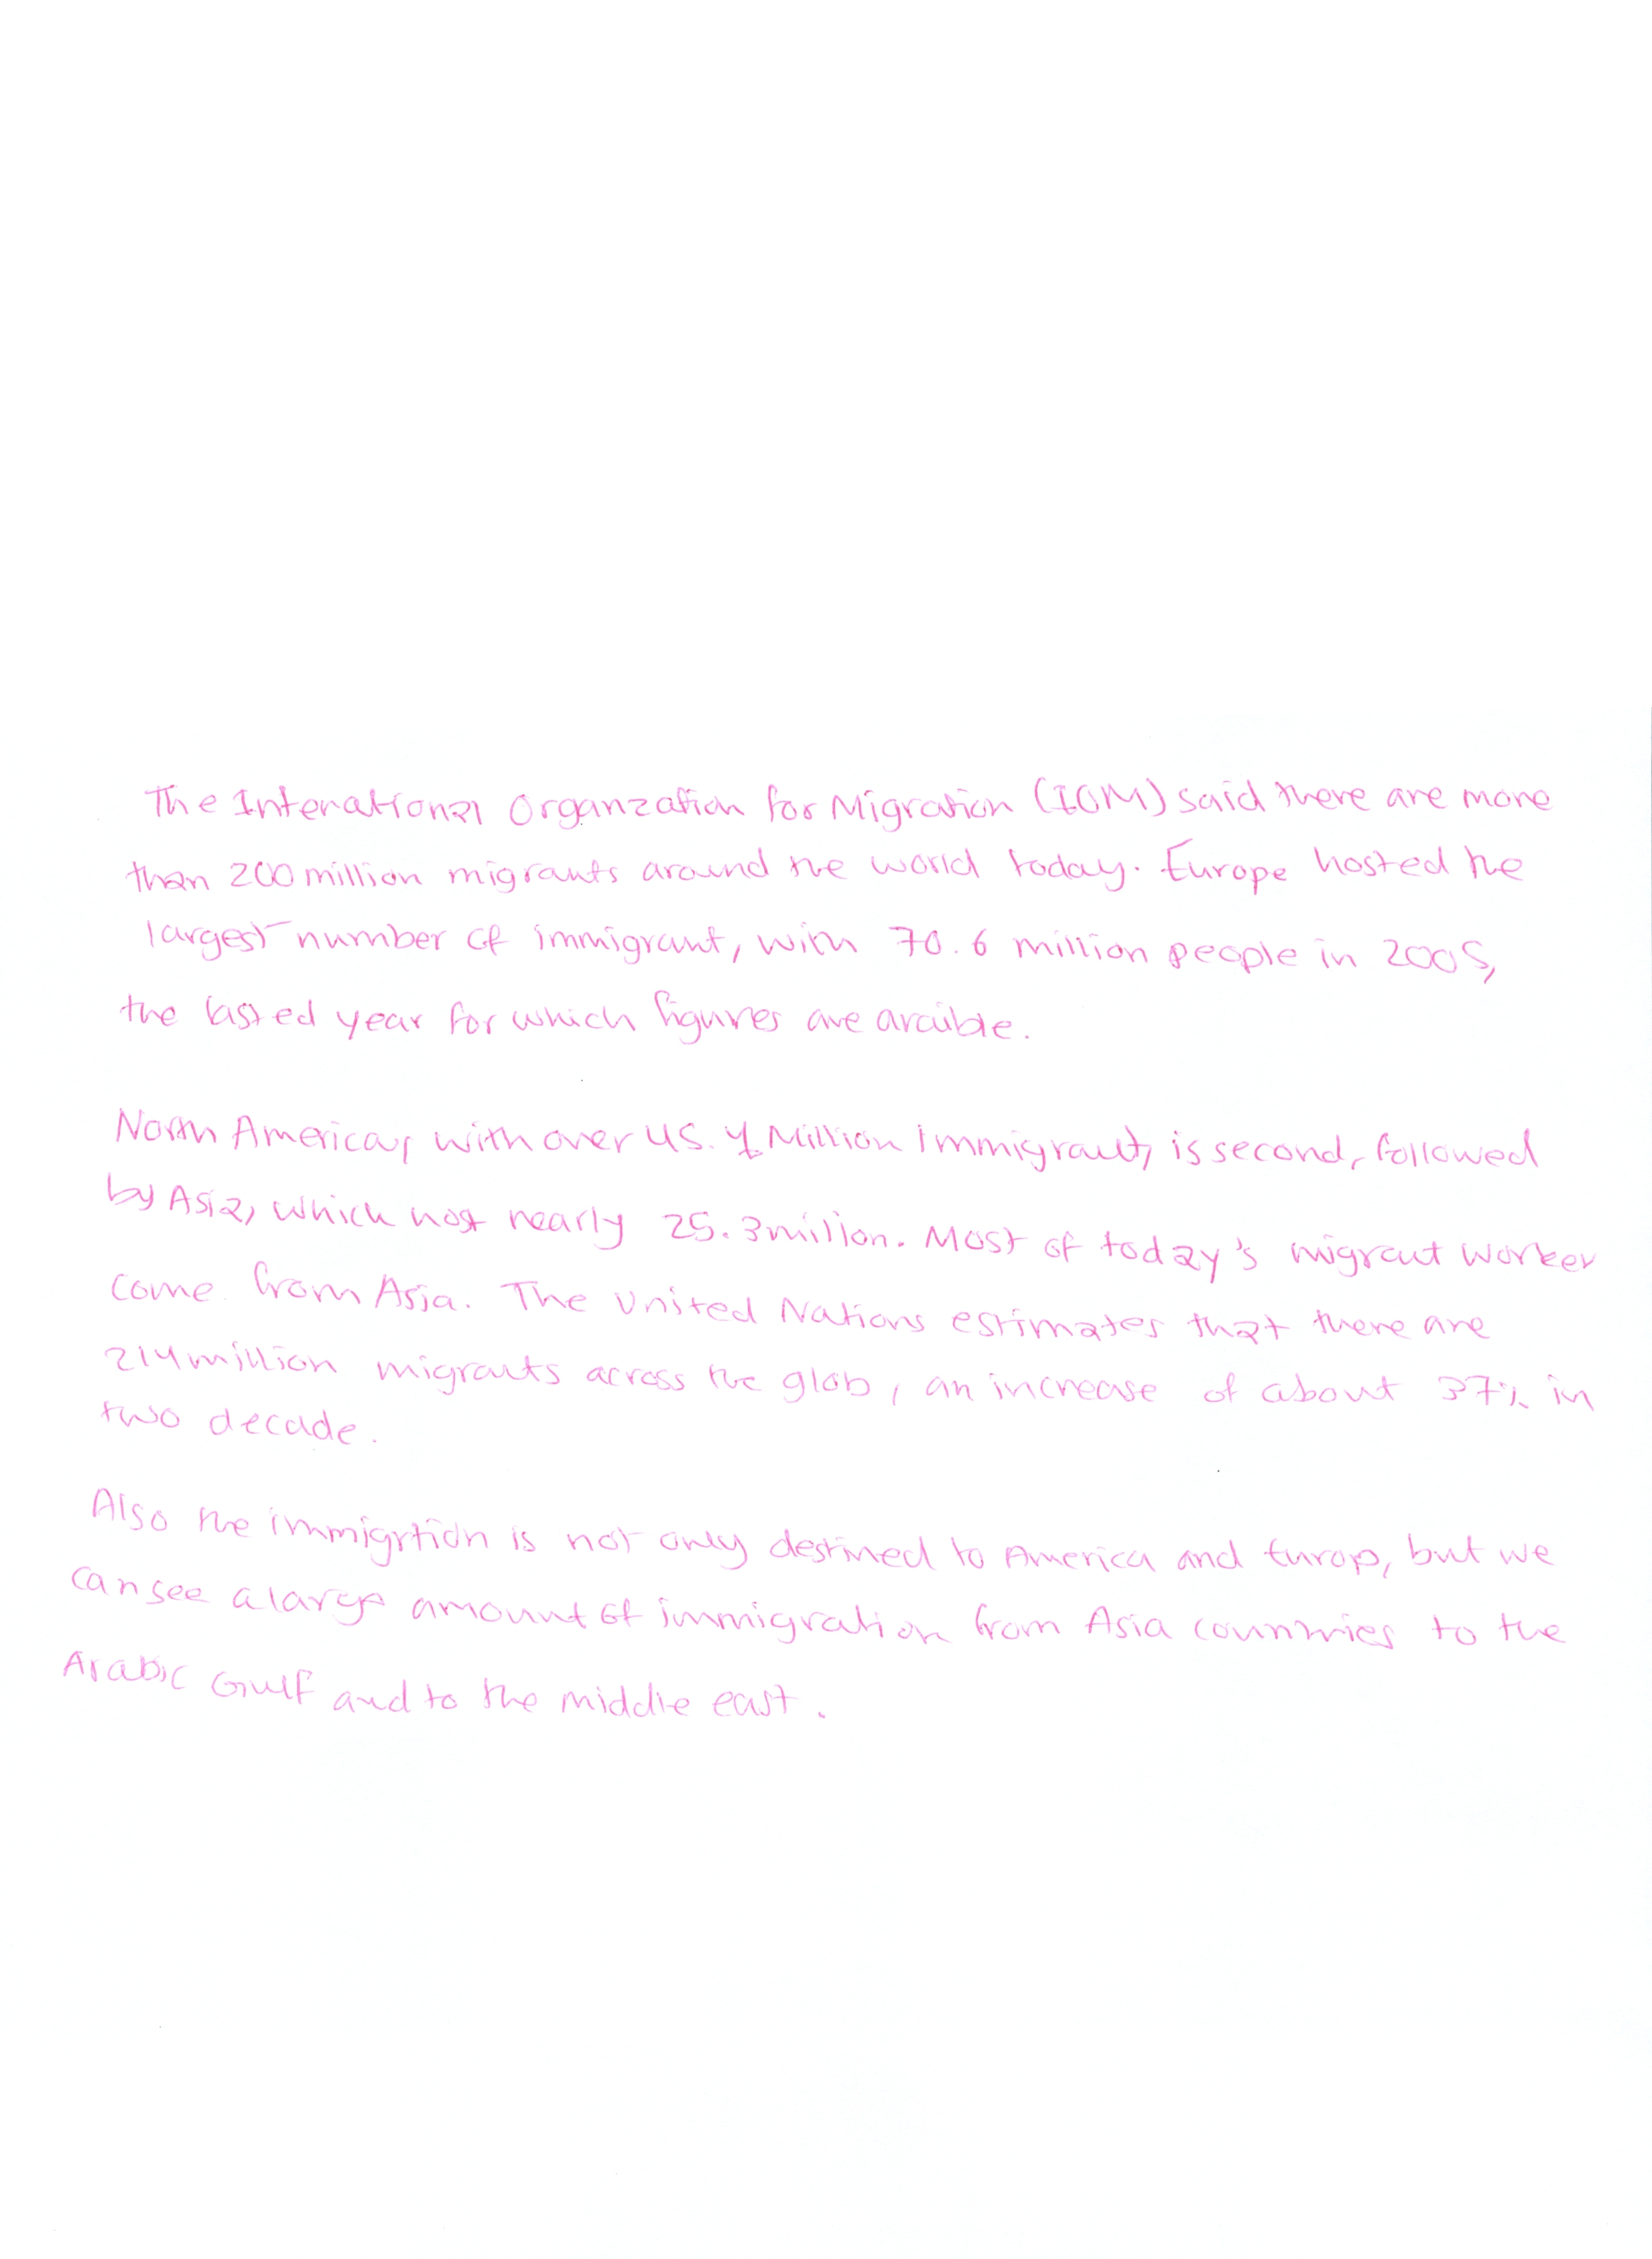 The Intenational Organzation for Migration (IOM) said there are more
than 200 million migrants around the world today. Europe hosted the
largest number of immigrant, with 70.6 million people in 2005,
the lasted year for which figures are
North America, with over 45. Million Immigrant, is second, followed
by Asia, which host nearly 25.3 million. Most of today's migrant worker
come from Asia. The United Nations estimates that there are
214 million migrants across the glob, an increase of about 37% in
two decade.
Also the immigrtion is not only destined to America and Europ, but we
can see a large amount of immigration from Asia countries to the
Arabic Gulf and to the middle east.